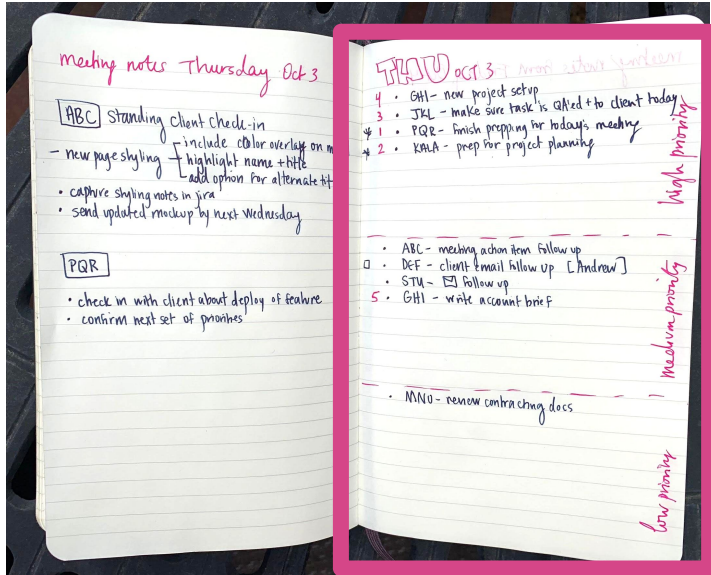 meeting notes Thursday Oct 3
ABC Standing Client Check-in
- new page styling include color overlay on m
highlight name + title
add option for alternate tit
• capture styling notes in jira
• send updated mockup by next Wednesday
PQR
• check in with client about deploy of feature
• confirm next set of priorities
THU OCT 3
4 • GHI - new project setup
3 • JKL - make sure task is QA'ed + to client today
* 1 • PQR - finish prepping for today's meeting
* 2 • KALA - prep for project planning
high priority
• ABC - meeting action item follow up
□ • DEF - client email follow up [Andrew]
• STU - ✉ follow up
5 • GHI - write account brief
medium priority
• MNO - review contracting docs
low priority